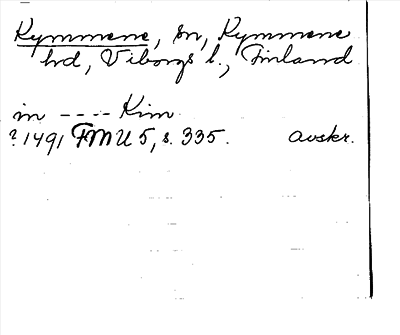 Kymmene, sn, Kymmene
hd, Viborgs l., Finland
in ---- Kim
? 1491 FMU 5, s. 335. avskr.